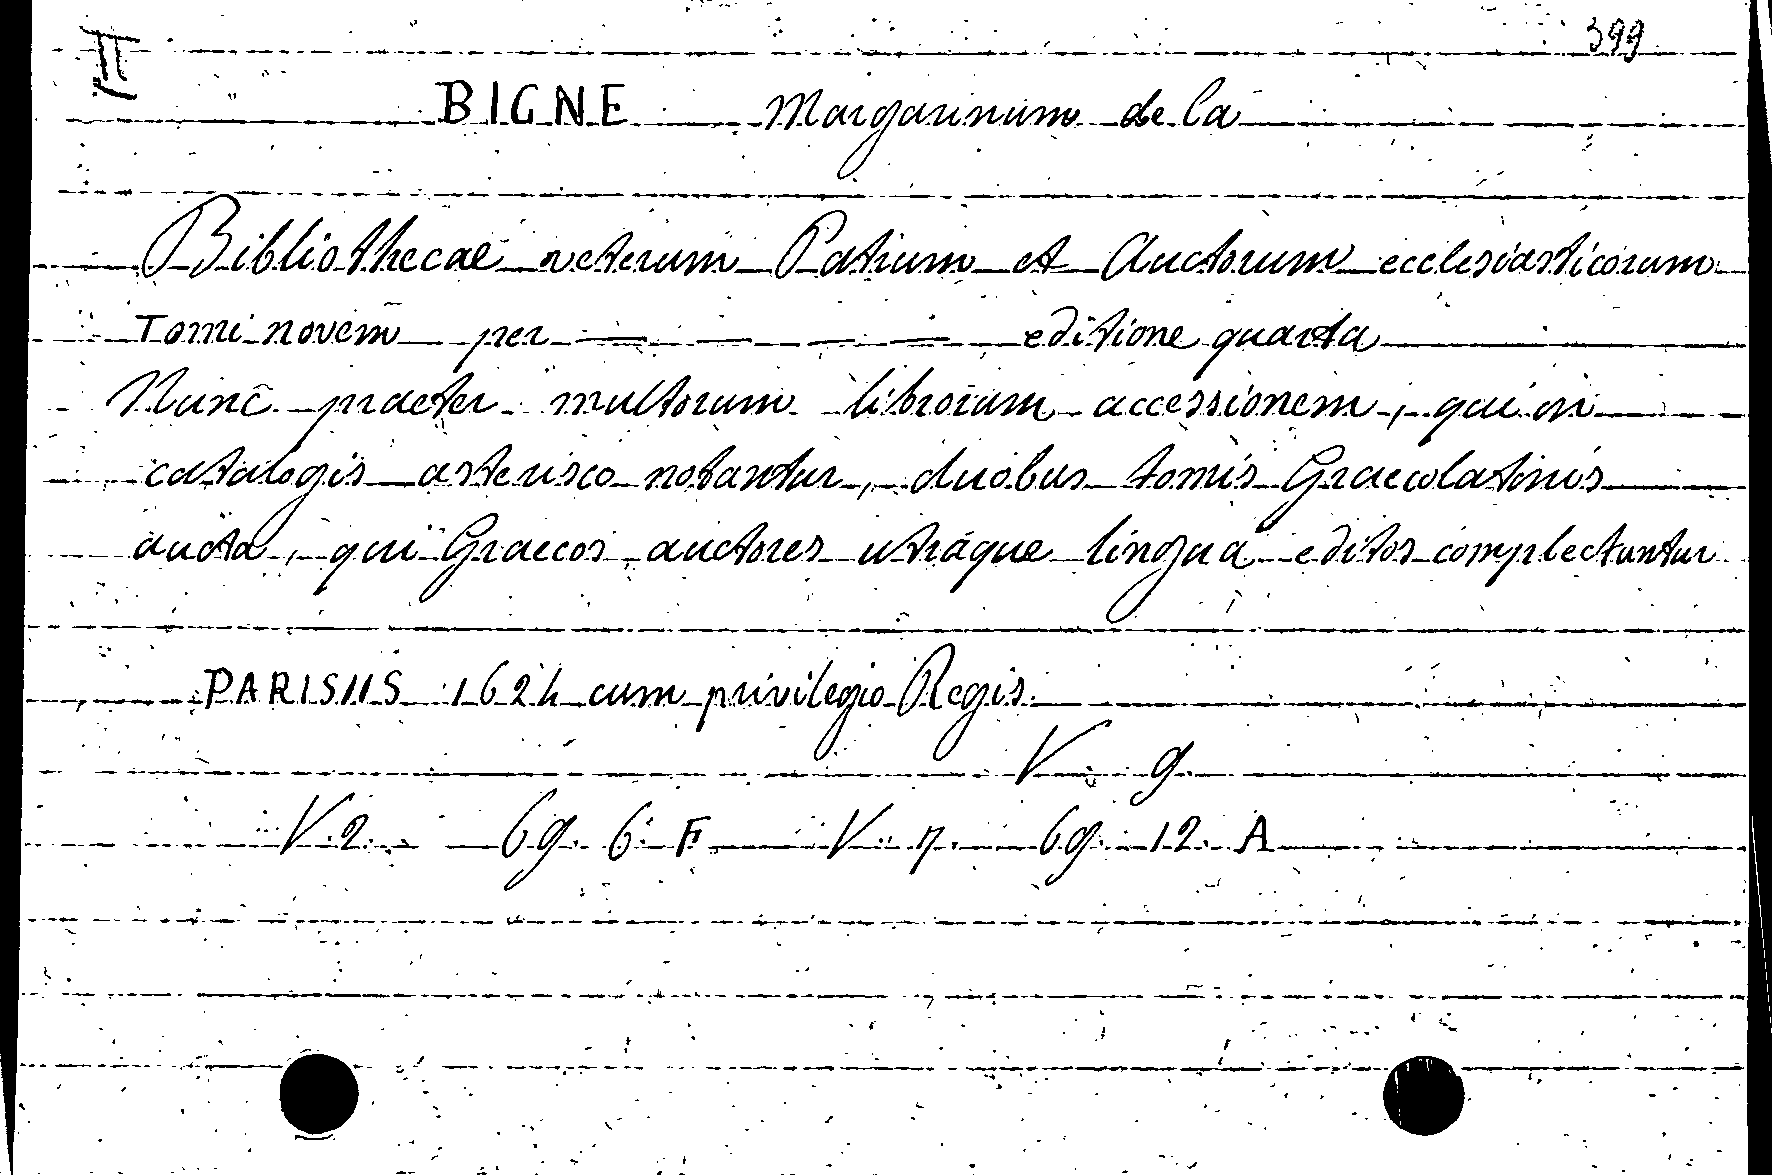 II 399
BIGNE Margarinum de la
Bibliothecae veterum Patrum et Auctorum ecclesiasticorum
Tomi novem per — — — — — editione quarta
Nunc praeter multorum librorum accessionem, qui in
catalogis asterisco notantur, duobus tomis Graecolatinis
aucta, qui Graecos auctores utraque lingua editos complectuntur
PARISIIS 1624 cum privilegio Regis.
V. 9.
V. 2. 69. 6. F V. 7. 69. 12. A